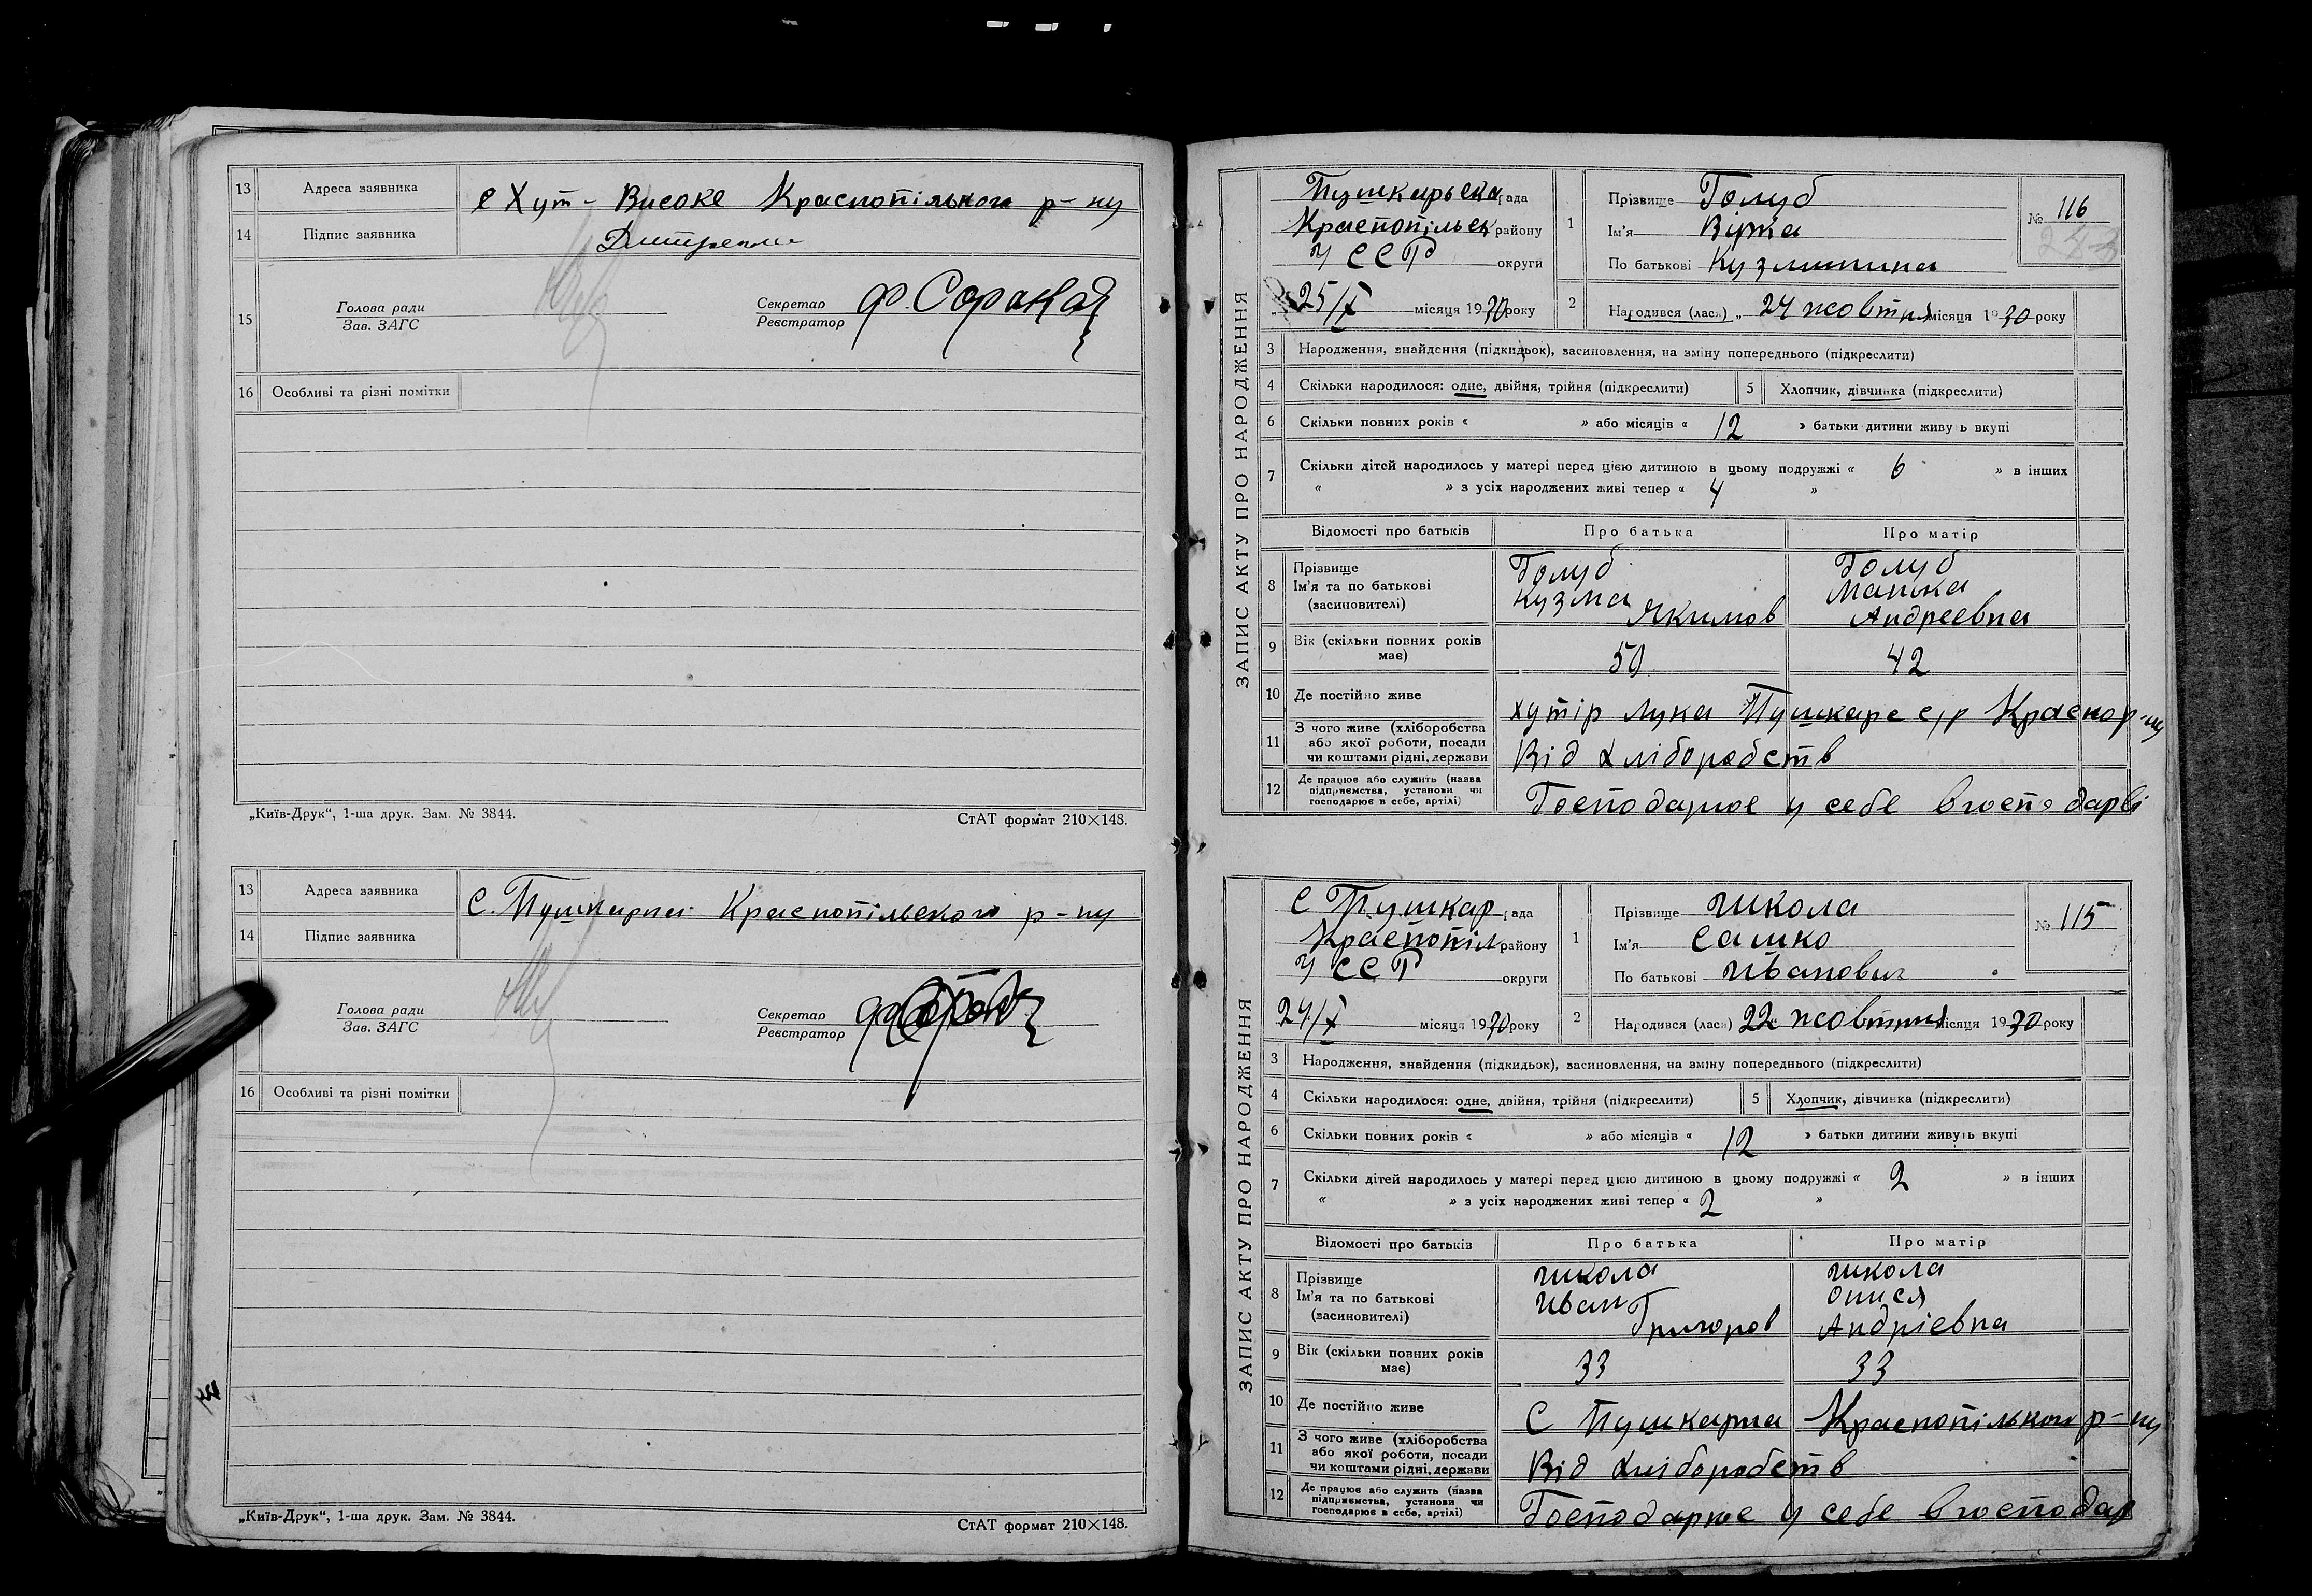 13 Адреса заявника с Хут - Високе Краснопільного р-ну
14 Підпис заявника Дмитренко
15 Голова ради
Зав. ЗАГС
Секретар
Реєстратор
16 Особливі та різні помітки
„Київ-Друк“, 1-ша друк. Зам. № 3844. СтАТ формат 210×148.
13 Адреса заявника С. Пушкарна Краснопільського р-ну
14 Підпис заявника
Голова ради
Зав. ЗАГС
Секретар
Реєстратор
16 Особливі та різні помітки
„Київ-Друк“, 1-ша друк. Зам. № 3844. СтАТ формат 210×148.
ЗАПИС АКТУ ПРО НАРОДЖЕННЯ
Пушкарьска рада
Краснопільск району
УССР округи
25/X місяця 1930 року
1 Прізвище Голуб
Ім'я Вірка
По батькові Кузминична
№ 116
2 Народився (лася) „ 24 жовтня місяця 1930 року
3 Народження, знайдення (підкидьок), засиновлення, на зміну попереднього (підкреслити)
4 Скільки народилося: одне, двійня, трійня (підкреслити) 5 Хлопчик, дівчинка (підкреслити)
6 Скільки повних років « » або місяців « 12 » батьки дитини живуть вкупі
7 Скільки дітей народилось у матері перед цією дитиною в цьому подружжі « 6 » в інших
« » з усіх народжених живі тепер « 4 »
Відомості про батьків Про батька Про матір
8 Прізвище Голуб Голуб
Ім'я та по батькові Кузма Манька
(засиновителі) Якимов Андреевна
9 Вік (скільки повних років має) 50 42
10 Де постійно живе хутір Лука Пушкаре с/р Краснор-ну
11 З чого живе (хліборобства
або якої роботи, посади
чи коштами рідні, держави Від хліборобств
12 Де працює або служить (назва
підприємства, установи чи
господарює в себе, артілі) Господарює у себе в господарві
ЗАПИС АКТУ ПРО НАРОДЖЕННЯ
С Пушкар рада
Краснопіл району
УССР округи
24/X місяця 1930 року
1 Прізвище Школа
Ім'я Сашко
По батькові Иванович
№ 115
2 Народився (лася) 22 жовтня місяця 1930 року
3 Народження, знайдення (підкидьок), засиновлення, на зміну попереднього (підкреслити)
4 Скільки народилося: одне, двійня, трійня (підкреслити) 5 Хлопчик, дівчинка (підкреслити)
6 Скільки повних років « » або місяців « 12 » батьки дитини живуть вкупі
7 Скільки дітей народилось у матері перед цією дитиною в цьому подружжі « 2 » в інших
« » з усіх народжених живі тепер « 2 »
Відомості про батьків Про батька Про матір
8 Прізвище Школа Школа
Ім'я та по батькові Иван Онися
(засиновителі) Григоров Андріевна
9 Вік (скільки повних років має) 33 33
10 Де постійно живе С Пушкарна Краснопільком р-ну
11 З чого живе (хліборобства
або якої роботи, посади
чи коштами рідні, держави Від хліборобств
12 Де працює або служить (назва
підприємства, установи чи
господарює в себе, артілі) Господарює у себе в господар